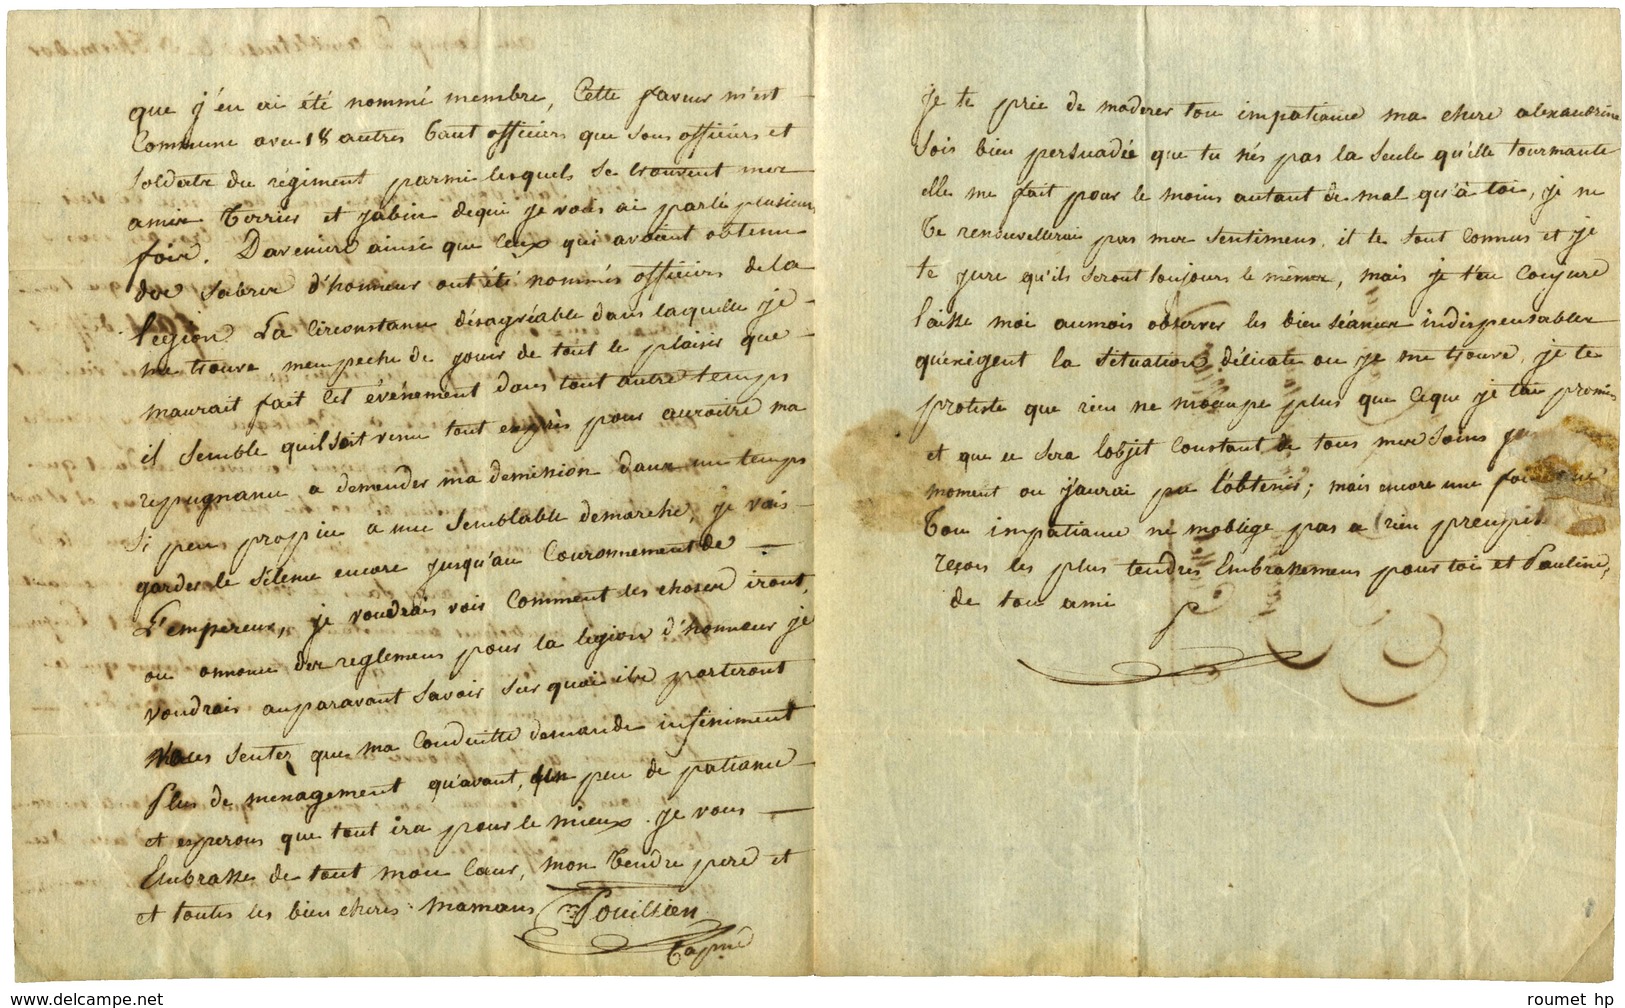 que j'en ai été nommé membre, Cette faveur m'est
Commune avec 18 autres tant officiers que sous officiers et
soldats du régiment parmi lesquels se trouvent mes
amis Terrier et Jabin de qui je vous ai parlé plusieurs
fois. D'avenir ainsi que ceux qui avaient obtenu
des sabres d'honneur ont été nommés officiers de la
légion La Circonstance désagréable dans laquelle je
me trouve, m'empeche de jouir de tout le plaisir que
m'aurait fait cet événement dans tout autre temps
il semble qu'il soit venu tout exprès pour accroitre ma
repugnance a demander ma demission dans un temps
si peu propice a une semblable demarche, je vais
garder le silence encore jusqu'au Couronnement de
L'empereur, je voudrais voir comment les choses iront,
on annonce des reglemens pour la legion d'honneur je
voudrais auparavant savoir sur quoi ils porteront
Vous sentez que ma Conduitte demande infiniment
plus de menagement qu'avant, un peu de patiance
et esperons que tout ira pour le mieux. je vous
Embrasse de tout mon Cœur, mon tendre pere et
et toutes les bien cheres mamans Pouillien
Capne
Je te prie de moderer ton impatiance ma chere alexandrine
sois bien persuadée que tu n'és pas la seule qu'elle tourmante
elle me fait pour le moins autant de mal qu'à toi, je ne
te renouvellerai pas mes sentimens, il te sont connus et je
te jure qu'ils seront toujours les mêmes, mais je t'en conjure
laisse moi aumois observer les bien séances indispensables
qu'exigent la situation délicate ou je me trouve, je te
proteste que rien ne m'ocupe plus que ce que je t'ai promis
et que ce sera l'objet constant de tous mes soins
moment ou j'aurai pu l'obtenir; mais encore une fois que
ton impatiance ne m'oblige pas a rien precipité
reçois les plus tendres Embrassemens pour toi et Pauline,
de ton ami
P
www.delcampe.net
roumet hp